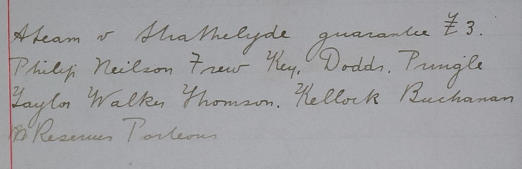 A team v Strathclyde guarantee £3.
Philip Neilson Frew Key, Dodds. Pringle
Taylor Walker Thomson. Kellock Buchanan
Reserves Porteous